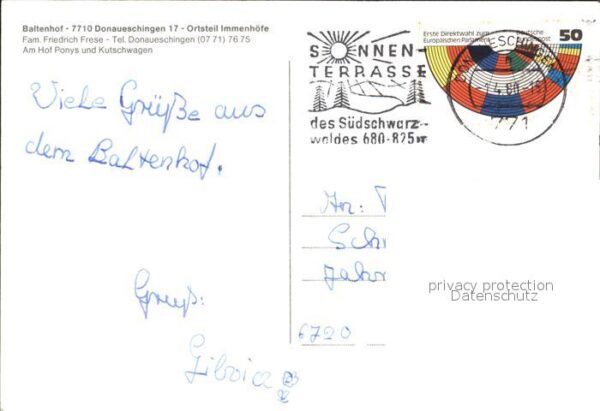 Baltenhof - 7710 Donaueschingen 17 - Ortsteil Immenhöfe
Fam. Friedrich Frese - Tel. Donaueschingen (07 71) 76 75
Am Hof Ponys und Kutschwagen
Viele Grüße aus
dem Baltenhof.
Gruß:
SONNEN-
TERRASSE
des Südschwarz-
waldes 680-825
Erste Direktwahl zum
Europäischen Parlament
Deutsche
50
771
Schi
Jahn
6720
privacy protection
Datenschutz